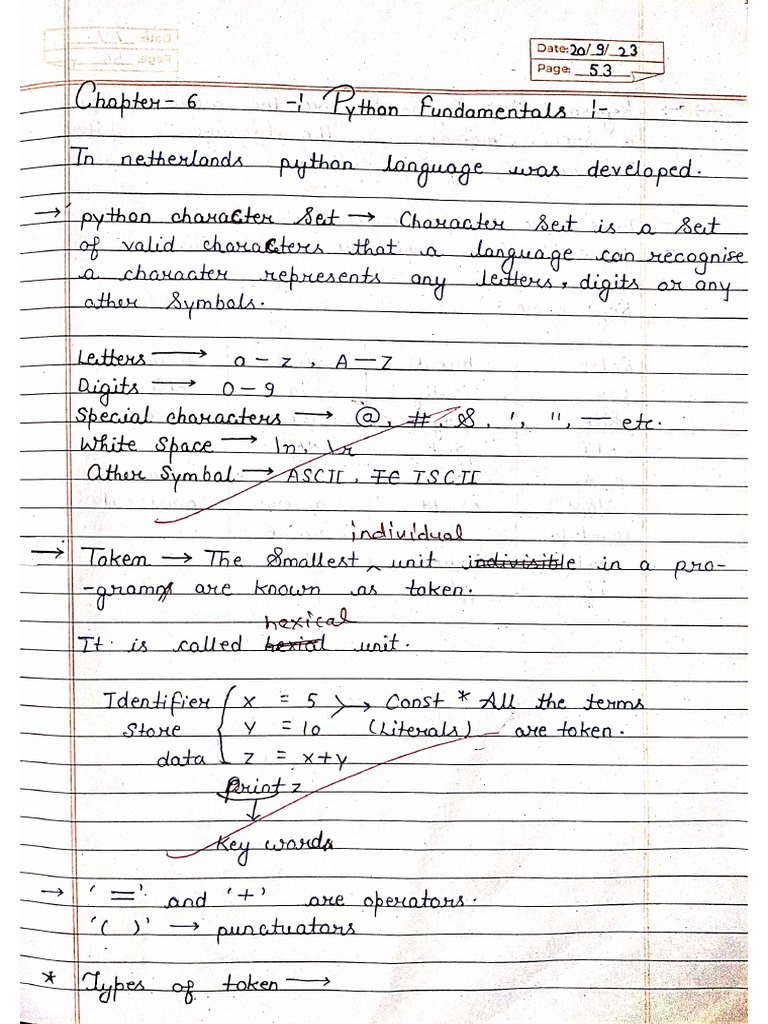 Date: 20/9/23
Page: 53
Chapter-6 -: Python Fundamentals :-
In netherlands python language was developed.
→ python character Set → Character Set is a Set
of valid characters that a language can recognise
a character represents any letters, digits or any
other Symbols.
Letters → a-z, A-Z
Digits → 0-9
Special characters → @, #, $, ', ", — etc.
White Space → \n, \r
Other Symbol → ASCII, ISCII
individual
→ Token → The Smallest ^ unit indivisible in a pro-
-gram are known as token.
lexical
It is called lexial unit.
Identifier { x = 5 } → Const * All the terms
Store y = 10 (Literals) are token.
data z = x+y
print z
↓
Key words
→ '=' and '+' are operators.
'( )' → punctuators
* Types of token →